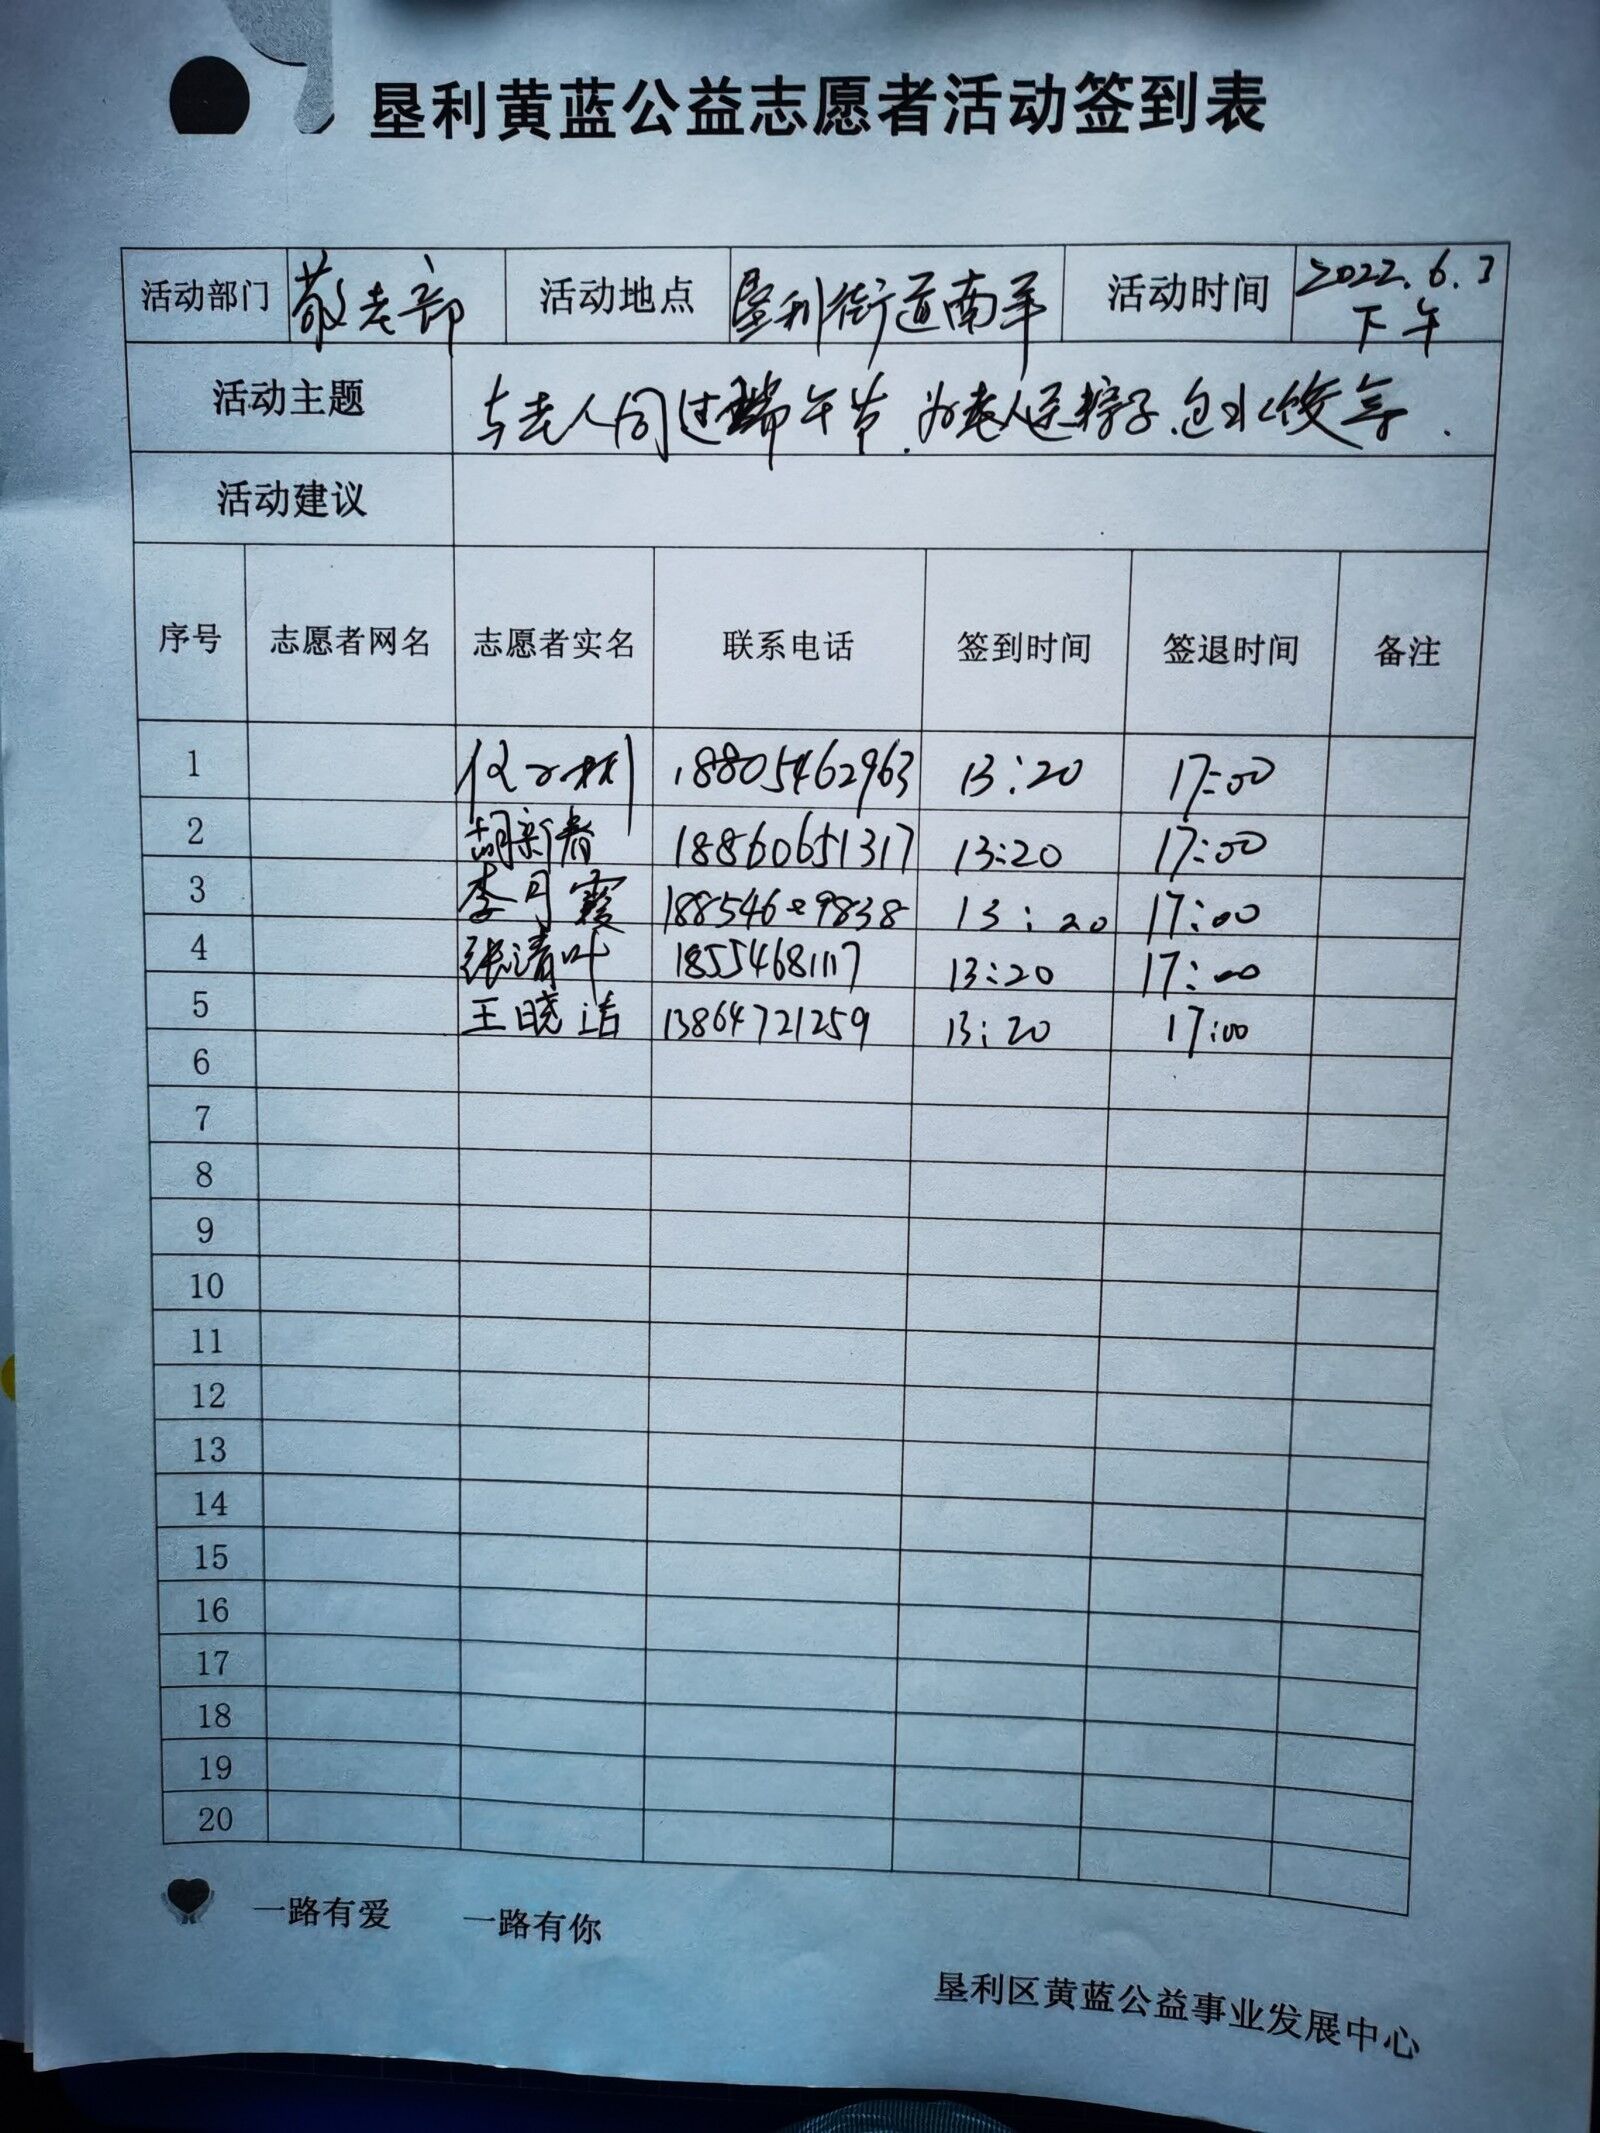 垦利黄蓝公益志愿者活动签到表
活动部门 敬老部 活动地点 垦利街道南羊 活动时间 2022.6.3 下午
活动主题 与老人同过端午节.为老人送粽子.包水饺等.
活动建议
序号 志愿者网名 志愿者实名 联系电话 签到时间 签退时间 备注
1 18805462963 13:20 17:00
2 胡新春 18860651317 13:20 17:00
3 李月霞 18854609838 13:20 17:00
4 张清叶 18554681117 13:20 17:00
5 王晓洁 13864721259 13:20 17:00
6
7
8
9
10
11
12
13
14
15
16
17
18
19
20
一路有爱 一路有你
垦利区黄蓝公益事业发展中心